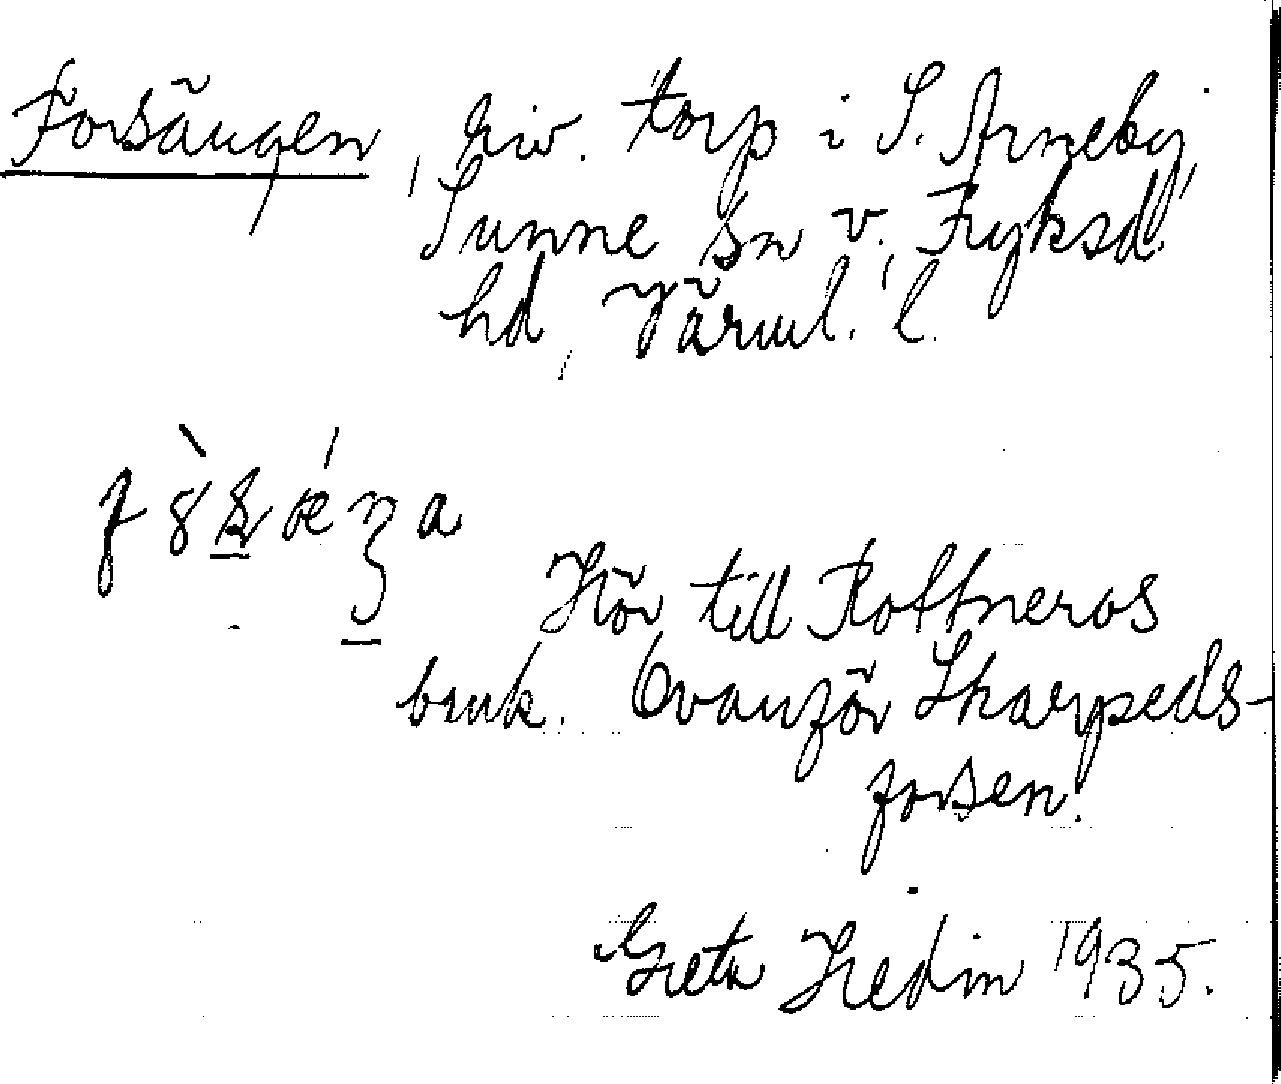 Forsängen, riv. torp i S. Arneby,
Sunne sn v. Fryksd.
hd, Värml. l.
Hör till Rottneros
bruk. Ovanför Skarpeds-
forsen.
Greta Hedin 1935.